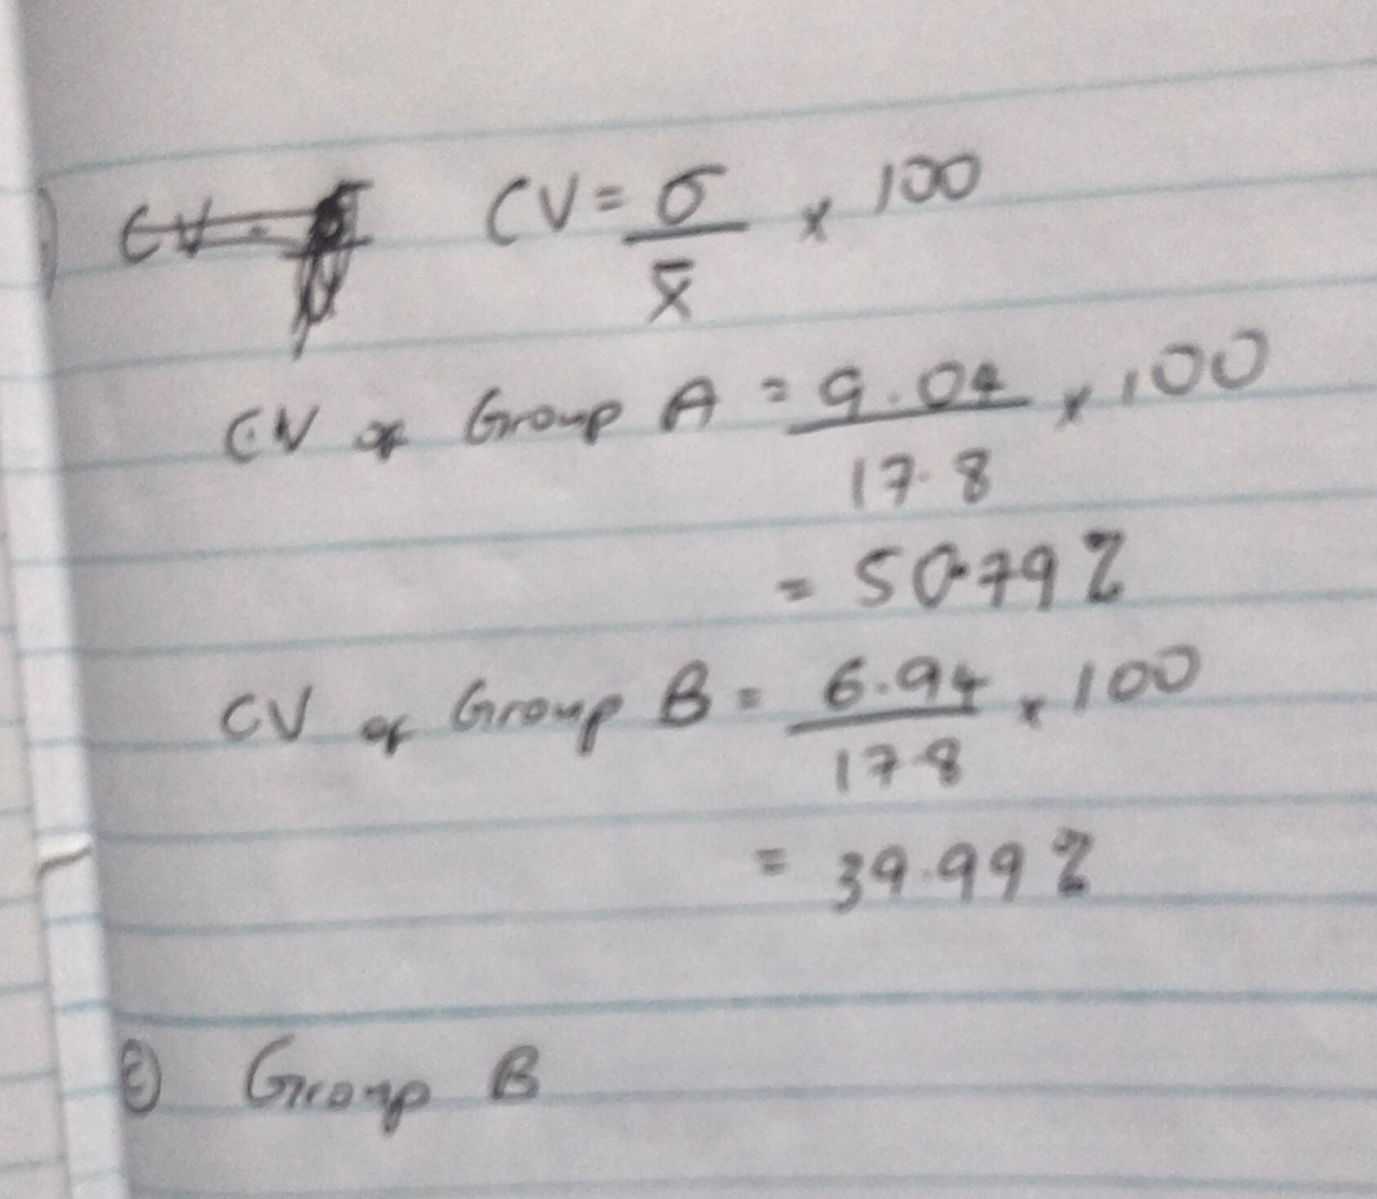 CV = σ/x̄ × 100
CV of Group A = 9.04/17.8 × 100
= 50.79%
CV of Group B = 6.94/17.8 × 100
= 39.99%
c) Group B